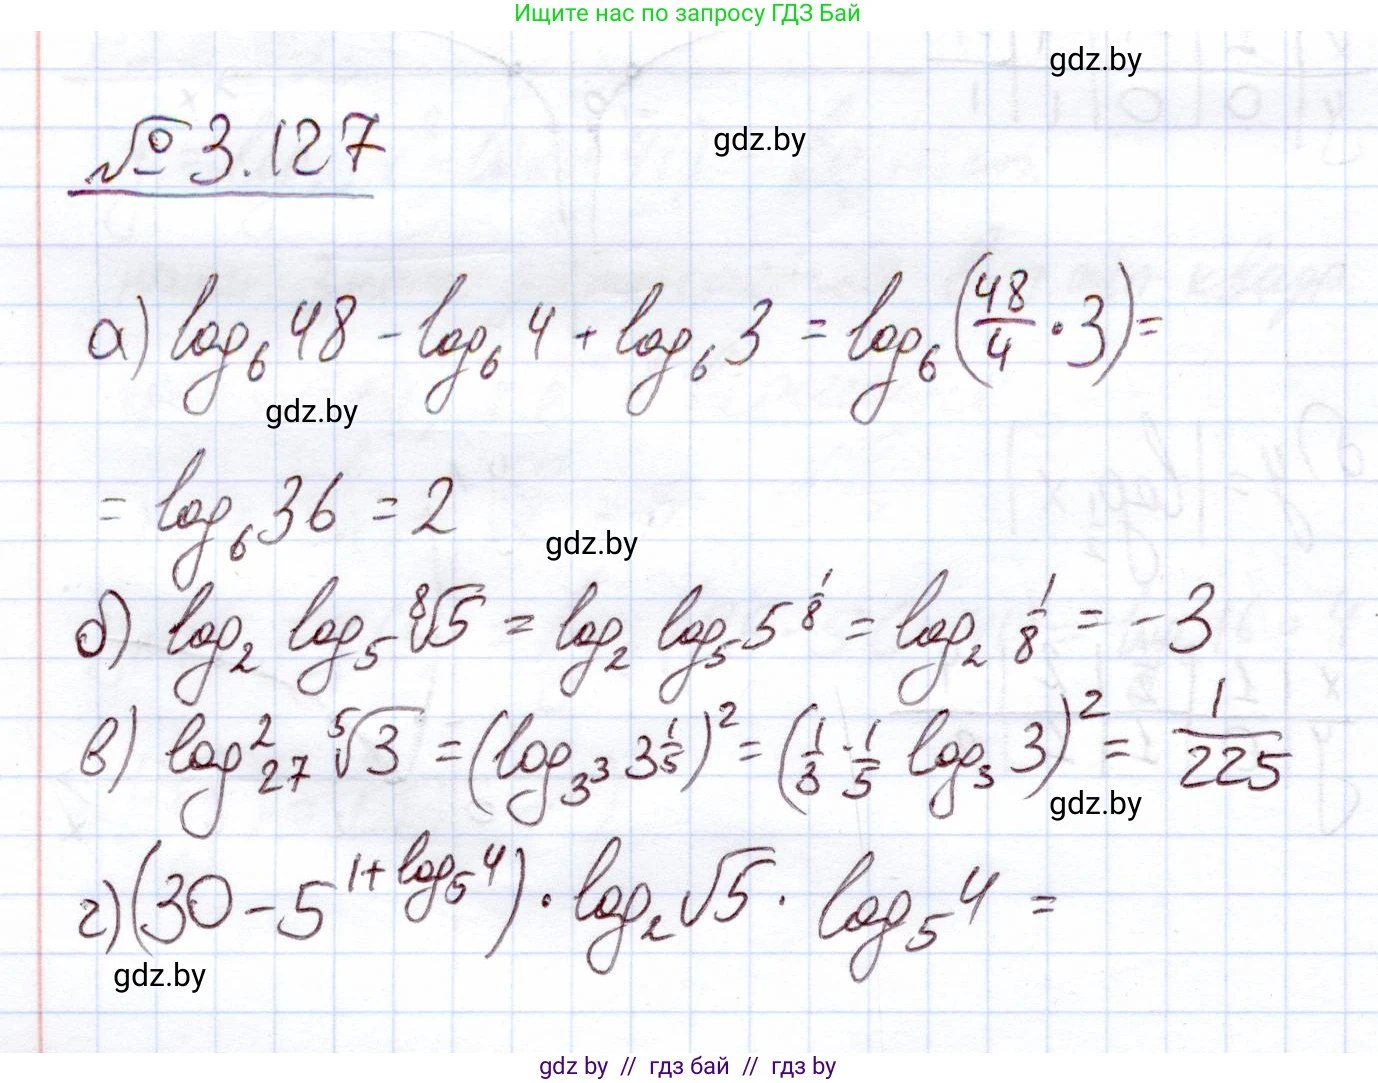 Ищите нас по запросу ГДЗ Бай
gdz.by
gdz.by
№ 3.127
а) log₆ 48 - log₆ 4 + log₆ 3 = log₆ (48/4 · 3) =
gdz.by
= log₆ 36 = 2
gdz.by
б) log₂ log₅ ⁸√5 = log₂ log₅ 5^(1/8) = log₂ 1/8 = -3
в) log²₂₇ ⁵√3 = (log_(3³) 3^(1/5))² = (1/3 · 1/5 log₃ 3)² = 1/225
gdz.by
г) (30 - 5^(1+log₅ 4)) · log₂ √5 · log₅ 4 =
gdz.by
gdz by // гдз бай // гдз by